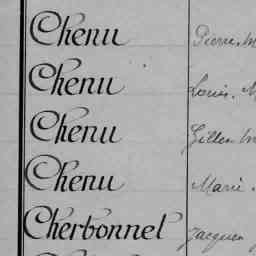 Chenu Pierre M
Chenu Louis. M
Chenu Gilles M
Chenu Marie
Cherbonnel Jacques